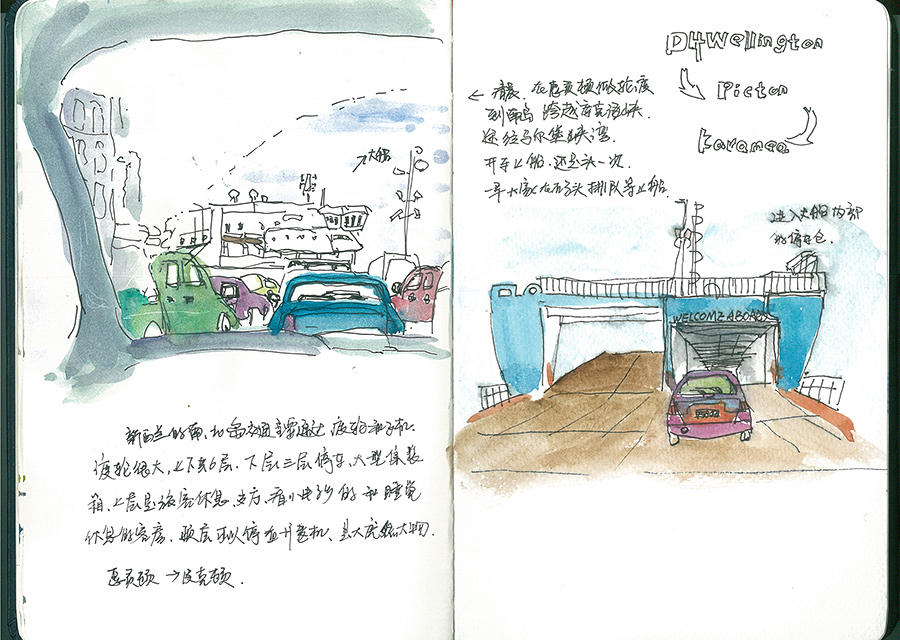 大船
新西兰的南、北岛交通主要通过渡轮和飞机、
渡轮很大,上下共6层.下层三层停车,大型集装
箱、上层是旅客休息、吃方、看小电影的和睡觉
休息的客房、顶层可以停直升飞机、是大庞然大物.
惠灵顿→皮克顿.
D4Wellington
Picton
Karamea
← 清晨.在惠灵顿做轮渡
到南岛 跨越库克海峡.
途径马尔堡峡湾.
开车上船,还是头一次.
一早大家在码头排队等上船.
进入大船内部
的停车仓.
WELCOME ABOARD